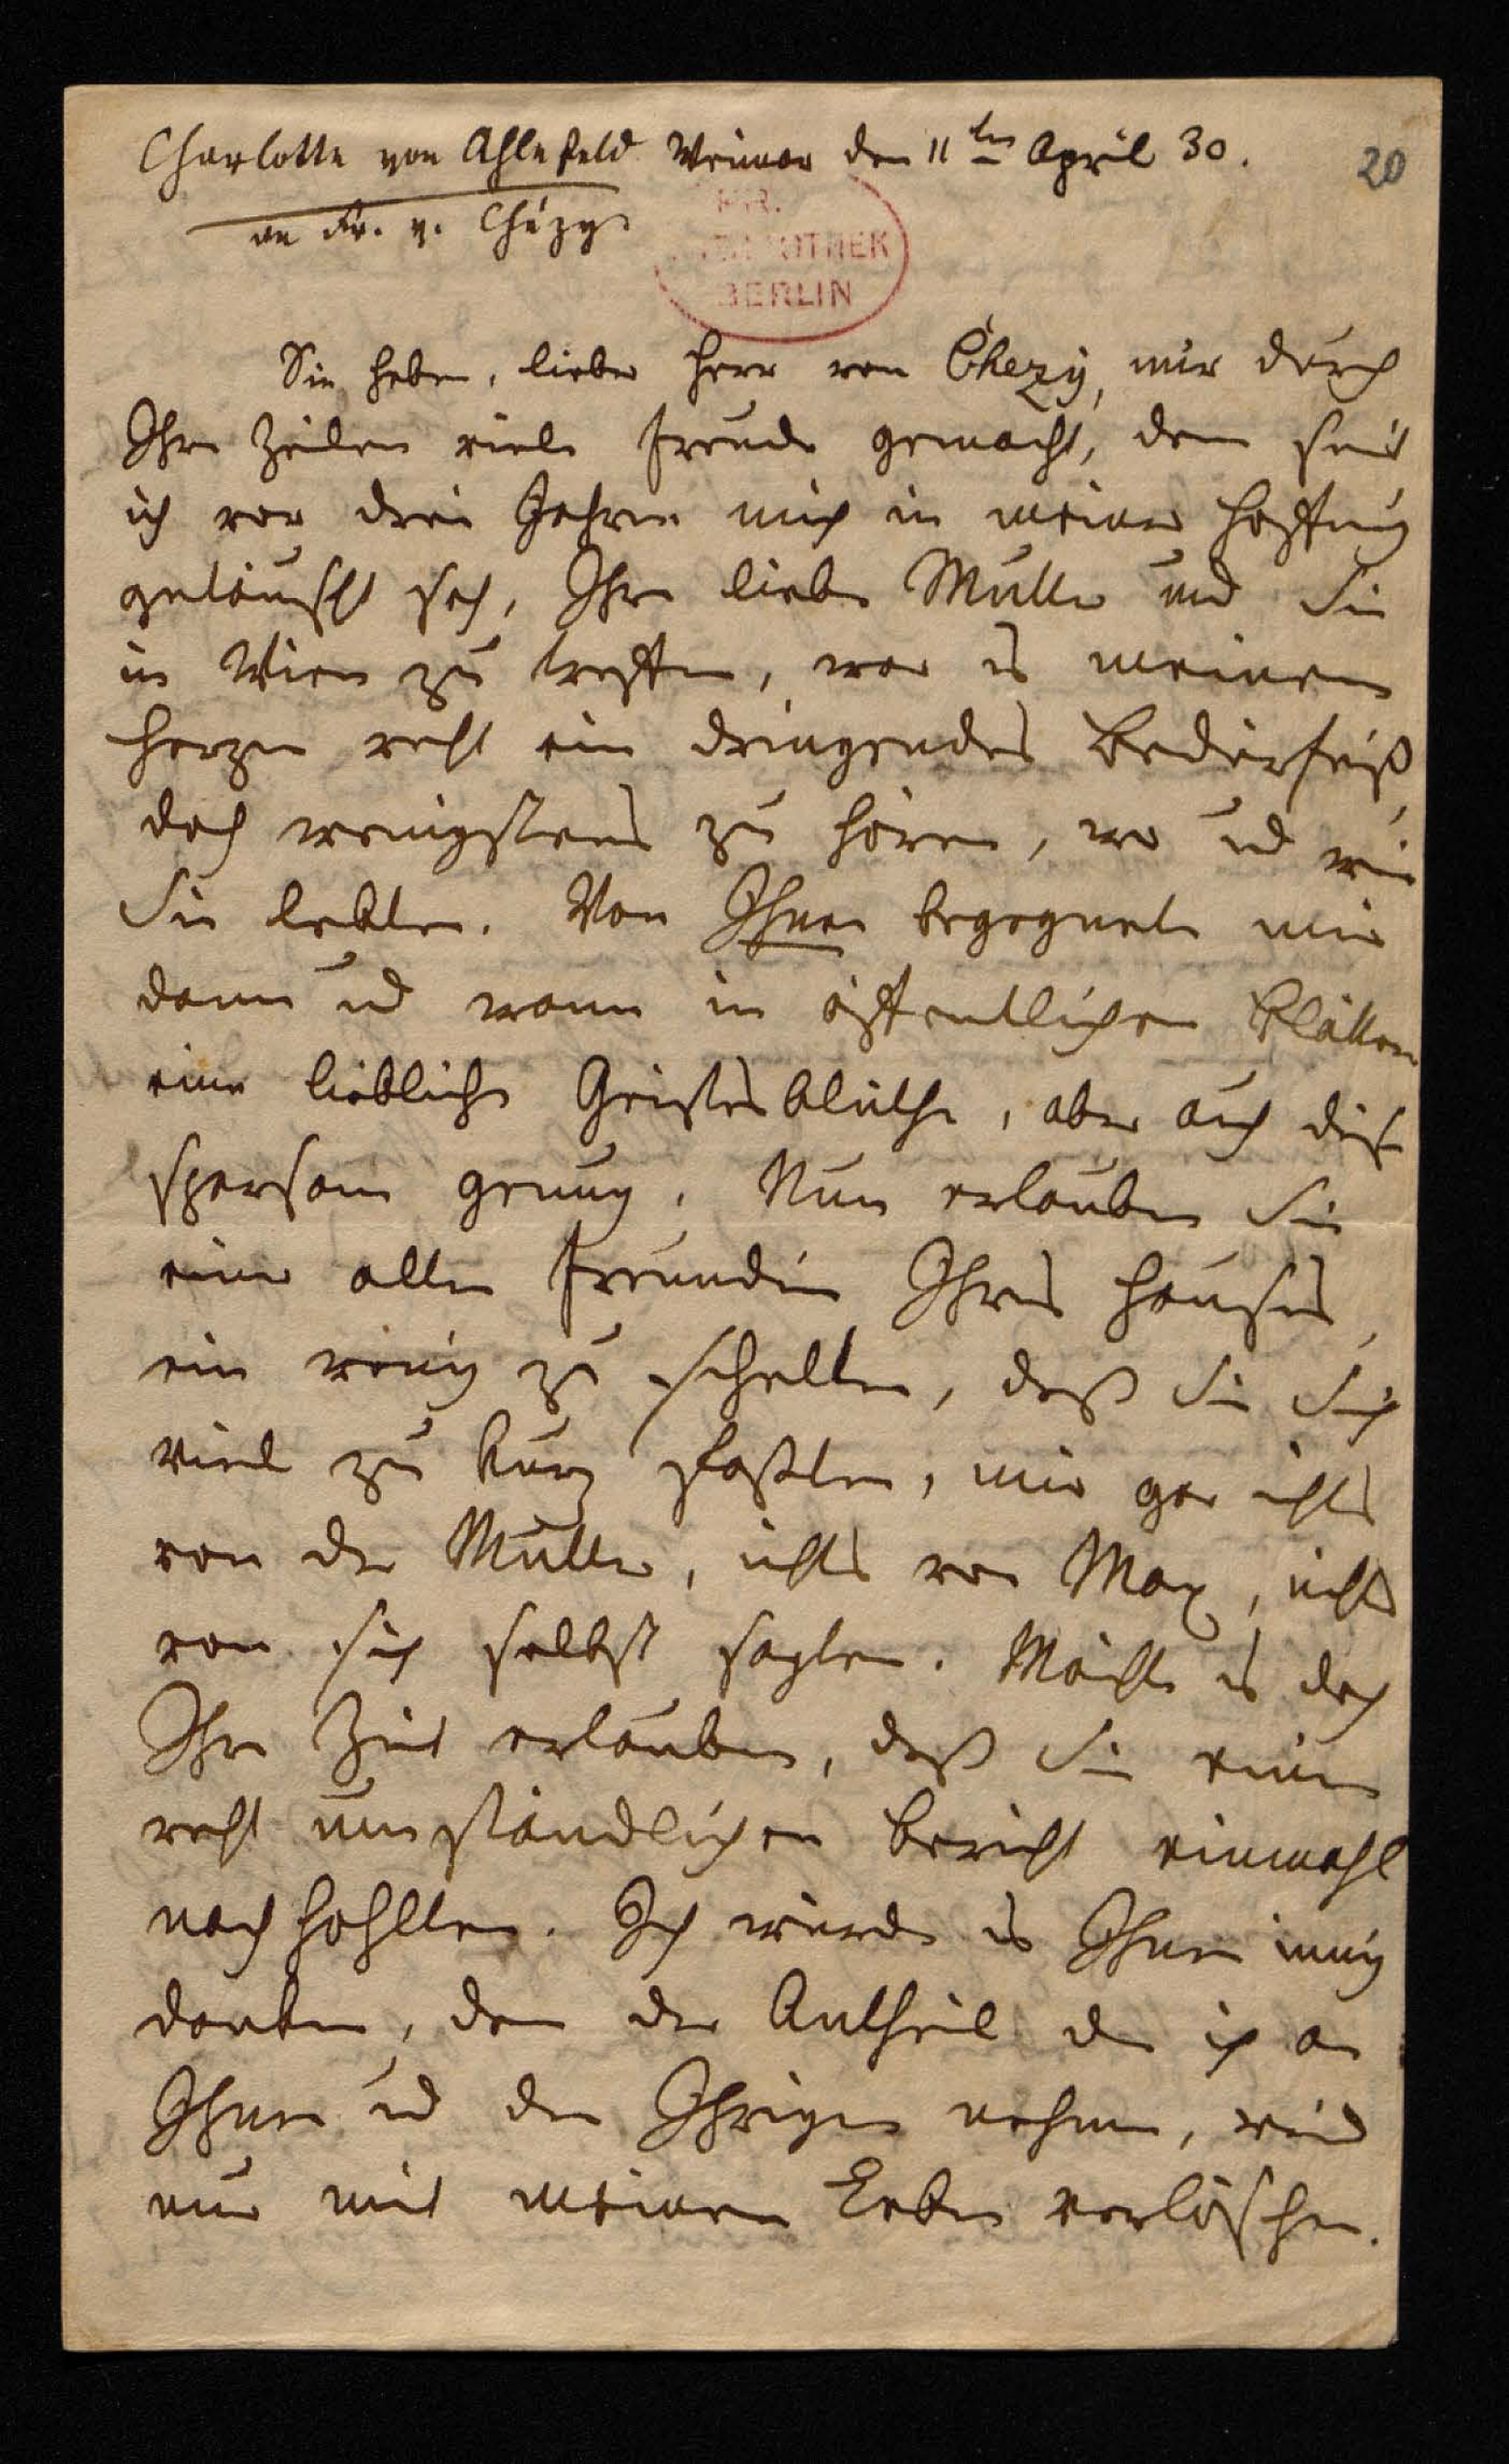 Charlotte von Ahlefeld Weimar den 11ten April 30.
20
an Fr. v. Chézy
BERLIN
Sie haben, lieber Herr von Chezy, mir durch
Ihre Zeilen viele Freude gemacht, denn seit
ich vor drei Jahren mich in meiner Hoffnung
getäuscht sah, Ihre liebe Mutter und Sie
in Wien zu treffen, war es meinem
Herzen recht ein dringendes Bedürfniß,
doch wenigstens zu hören, wo und wie
Sie lebten. Von Ihnen begegnete mir
dann und wann in öffentlichen Blättern
eine liebliche Geistesblüthe, aber auch dies
sparsam genung. Nun erlauben Sie
einer alten Freundin Ihres Hauses,
ein wenig zu schelten, daß Sie Sich
viel zu kurz faßten, mir gar nichts
von der Mutter, nichts von Max, nichts
von sich selbst sagten. Möchte es doch
Ihre Zeit erlauben, daß Sie einen
recht umständlichen Bericht einmahl
nachhohlten. Ich würde es Ihnen innig
danken, denn der Antheil den ich an
Ihnen und den Ihrigen nehme, wird
nur mit meinem Leben verlöschen.